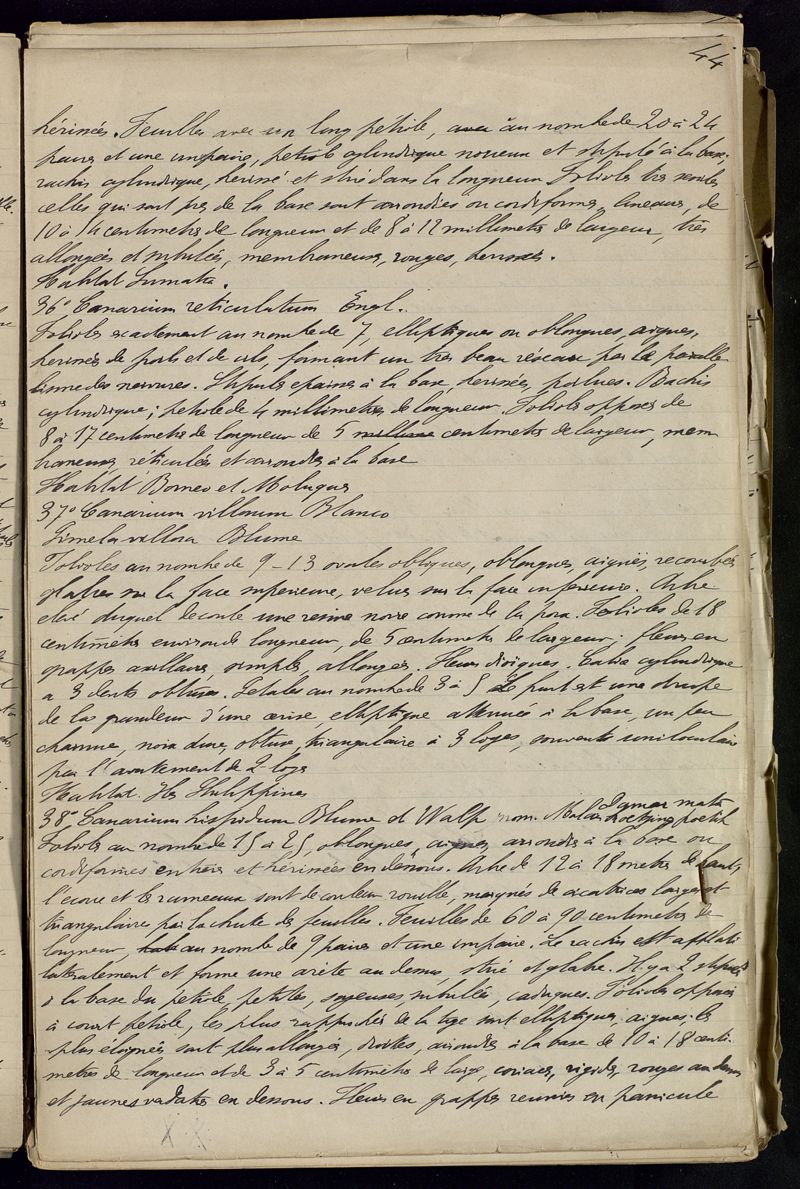 44
hérissés. Feuilles avec un long pétiole, avec au nombre de 20 à 24
paires et une impaire, petiole cylindrique noueux et stipulé à la base,
rachis cylindrique, herissé et strié dans la longueur Folioles tres sessiles
celles qui sont pres de la base sont arrondies ou cordiformes, lineaires, de
10 à 14 centimetres de longueur et de 8 à 12 millimetres de largeur, très
allongées et subulées, membraneuses, rouges, herissées.
Habitat Sumatra.
36° Canarium reticulatum Engl.
Folioles exactement au nombre de 7, elliptiques ou oblongues, aigues,
herissées de poils et de cils, formant un tres beau réseau par le paralle
lisme des nervures. Stipules eparses à la base herissées, poilues. Rachis
cylindrique; petiole de 4 millimetres de longueur. Folioles opposées de
8 à 17 centimetres de longueur de 5 centimetres de largeur, mem
braneuses, reticulées et arrondies à la base
Habitat Borneo et Moluques
37° Canarium villosum Blanco
Pimela villosa Blume
Folioles au nombre de 9-13 ovales obliques, oblongues, aiguës, recourbées
glabres sur la face superieure, velues sur la face inferieure. Arbre
elevé duquel decoule une resine noire comme de la poix. Folioles de 18
centimètres environ de longueur, de 5 centimetres de largeur; fleurs en
grappes axillaires, simples, allongées. Fleurs dioiques. Calice cylindrique
a 3 dents obtuses. Petales au nombre de 3 à 5 Le fruit est une drupe
de la grandeur d'une cerise, elliptique attenuée à la base, un peu
charnue, noix dure, obtuse, triangulaire à 3 loges, souvent uniloculaire
par l'avortement de 2 loges
Habitat. Iles Philippines
38° Canarium hispidum Blume et Walp nom. Malais Damar mata
poetih
Folioles au nombre de 15 à 25, oblongues, aigues, arrondies à la base ou
cordiformes entieres et hérissées en dessous. Arbre de 12 à 18 metres de haut,
l'ecorce et les rameaux sont de couleur rouille, marqués de cicatrices larges et
triangulaires par la chute des feuilles. Feuilles de 60 à 90 centimetres de
longueur, au nombre de 9 paires et une impaire. Le rachis est applati
lateralement et forme une arête au dessus, strié et glabre. Il y a 2 stipules
à la base du pétiole, petites, soyeuses, subulées, caduques. Folioles opposées
à court petiole, les plus rapprochées de la tige sont elliptiques, aigues; les
plus éloignées sont plus allongées, droites, arrondies à la base de 10 à 18 centi-
metres de longueur et de 3 à 5 centimètres de large, coriaces, rigides, rouges au dessus
et jaunes verdatres en dessous. Fleurs en grappes reunies en panicule